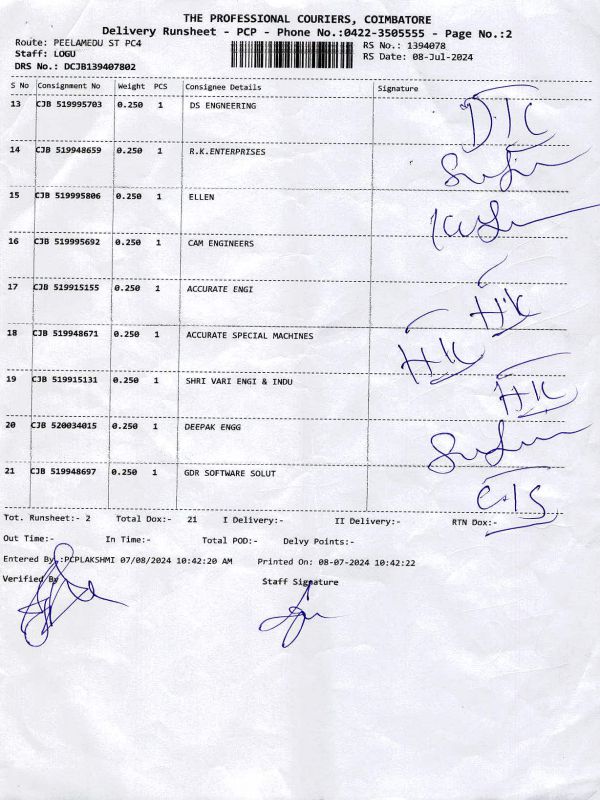 THE PROFESSIONAL COURIERS, COIMBATORE
Delivery Runsheet - PCP - Phone No.:0422-3505555 - Page No.:2
Route: PEELAMEDU ST PC4 RS No.: 1394078
Staff: LOGU RS Date: 08-Jul-2024
DRS No.: DCJB139407802
S No Consignment No Weight PCS Consignee Details Signature
13 CJB 519995703 0.250 1 DS ENGNEERING
14 CJB 519948659 0.250 1 R.K.ENTERPRISES
15 CJB 519995806 0.250 1 ELLEN
16 CJB 519995692 0.250 1 CAM ENGINEERS
17 CJB 519915155 0.250 1 ACCURATE ENGI HK
18 CJB 519948671 0.250 1 ACCURATE SPECIAL MACHINES HK
19 CJB 519915131 0.250 1 SHRI VARI ENGI & INDU HK
20 CJB 520034015 0.250 1 DEEPAK ENGG
21 CJB 519948697 0.250 1 GDR SOFTWARE SOLUT
Tot. Runsheet:- 2 Total Dox:- 21 I Delivery:- II Delivery:- RTN Dox:-
Out Time:- In Time:- Total POD:- Delvy Points:-
Entered By :PCPLAKSHMI 07/08/2024 10:42:20 AM Printed On: 08-07-2024 10:42:22
Verified By Staff Signature